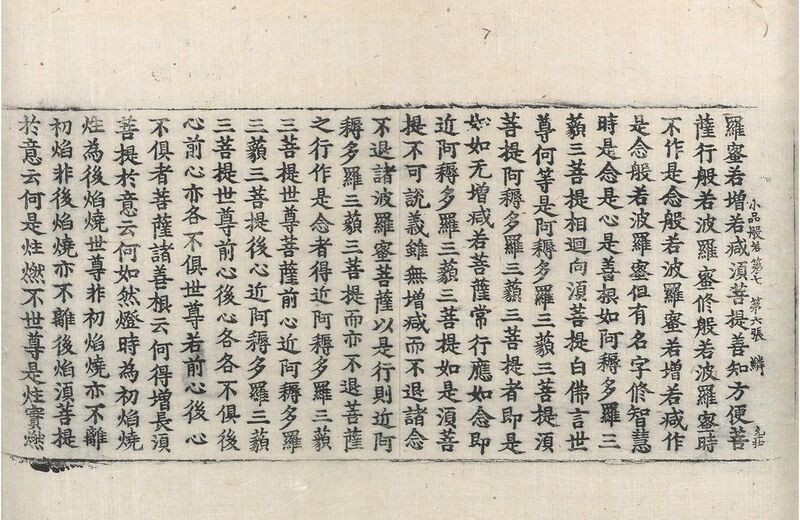 小品般若第七 第六張 鱗
羅蜜若增若减須菩提善知方便菩
薩行般若波羅蜜修般若波羅蜜時
不作是念般若波羅蜜若增若减作
是念般若波羅蜜但有名字修智慧
時是念是心是善根如阿耨多羅三
藐三菩提相迴向須菩提白佛言世
尊何等是阿耨多羅三藐三菩提須
菩提阿耨多羅三藐三菩提者即是
如如无增减若菩薩常行應如念即
近阿耨多羅三藐三菩提如是須菩
提不可說義雖無增减而不退諸念
不退諸波羅蜜菩薩以是行則近阿
耨多羅三藐三菩提而亦不退菩薩
之行作是念者得近阿耨多羅三藐
三菩提世尊菩薩前心近阿耨多羅
三藐三菩提後心近阿耨多羅三藐
三菩提世尊前心後心各各不俱後
心前心亦各不俱世尊若前心後心
不俱者菩薩諸善根云何得增長須
菩提於意云何如然燈時為初焰燒
炷為後焰燒世尊非初焰燒亦不離
初焰非後焰燒亦不離後焰須菩提
於意云何是炷燃不世尊是炷實燃